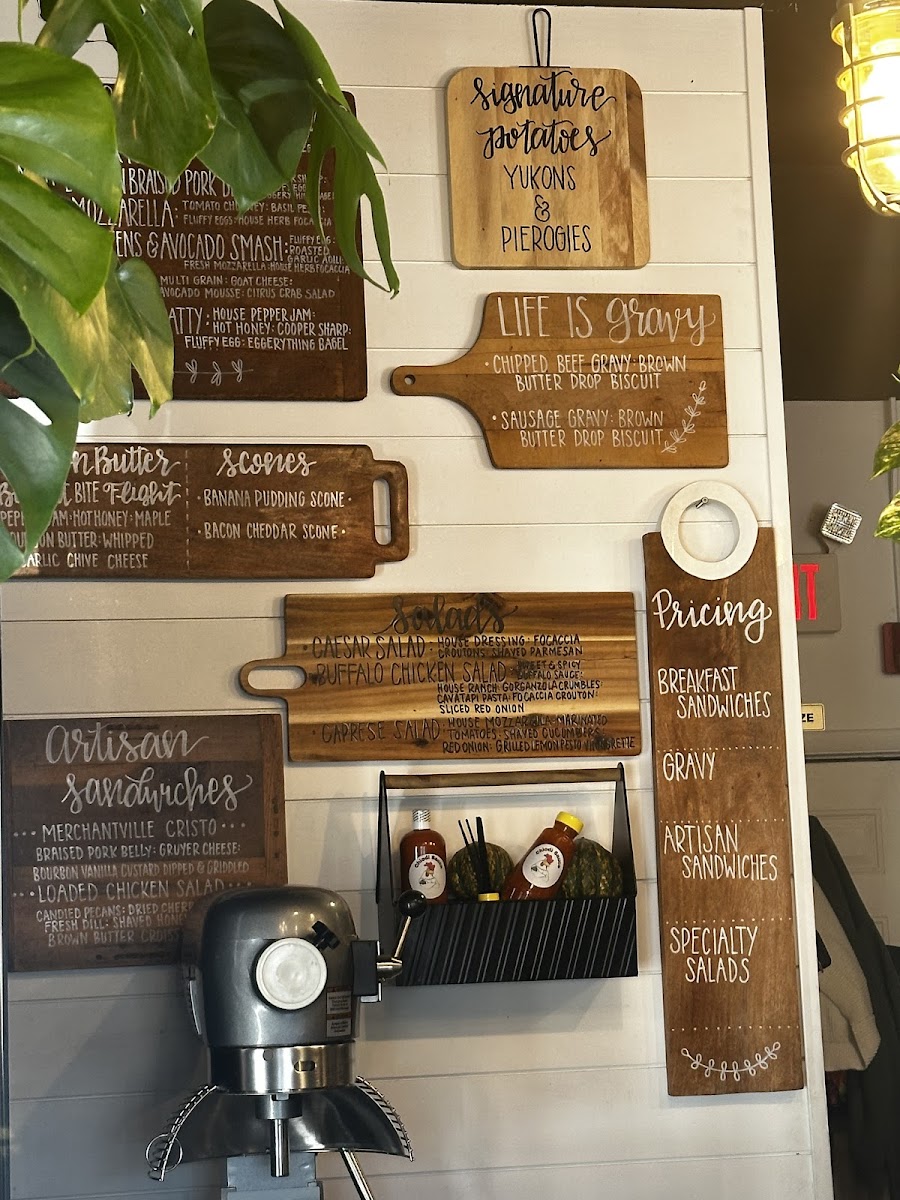 BRAISED PORK
MOZZARELLA: TOMATO
FLUFFY EGGS: HOUSE HERB FOCACCIA
& AVOCADO SMASH: FLUFFY EGG:
ROASTED
GARLIC AOILI:
FRESH MOZZARELLA: HOUSE HERB FOCACCIA
MULTI GRAIN: GOAT CHEESE:
AVOCADO MOUSSE: CITRUS CRAB SALAD
HOUSE PEPPER JAM:
HOT HONEY: COOPER SHARP:
FLUFFY EGG: EGGERYTHING BAGEL
signature
potatoes
YUKONS
&
PIEROGIES
LIFE IS gravy
• CHIPPED BEEF GRAVY: BROWN
BUTTER DROP BISCUIT
• SAUSAGE GRAVY: BROWN
BUTTER DROP BISCUIT
Butter
BITE Flight
JAM: HOT HONEY: MAPLE
BUTTER: WHIPPED
GARLIC CHIVE CHEESE
scones
• BANANA PUDDING SCONE •
• BACON CHEDDAR SCONE •
salads
• CAESAR SALAD: HOUSE DRESSING: FOCACCIA
CROUTONS: SHAVED PARMESAN
• BUFFALO CHICKEN SALAD: SWEET & SPICY
BUFFALO SAUCE:
HOUSE RANCH: GORGANZOLA CRUMBLES:
CAVATAPI PASTA: FOCACCIA CROUTON:
SLICED RED ONION
• CAPRESE SALAD: HOUSE MOZZARELLA: MARINATED
TOMATOES: SHAVED CUCUMBERS:
RED ONION: GRILLED LEMON PESTO VINAIGRETTE
Artisan
sandwiches
••• MERCHANTVILLE CRISTO •••
BRAISED PORK BELLY: GRUYER CHEESE:
BOURBON VANILLA CUSTARD DIPPED & GRIDDLED
•• LOADED CHICKEN SALAD ••
CANDIED PECANS: DRIED
FRESH DILL: SHAVED
BROWN BUTTER
Pricing
BREAKFAST
SANDWICHES
GRAVY
ARTISAN
SANDWICHES
SPECIALTY
SALADS